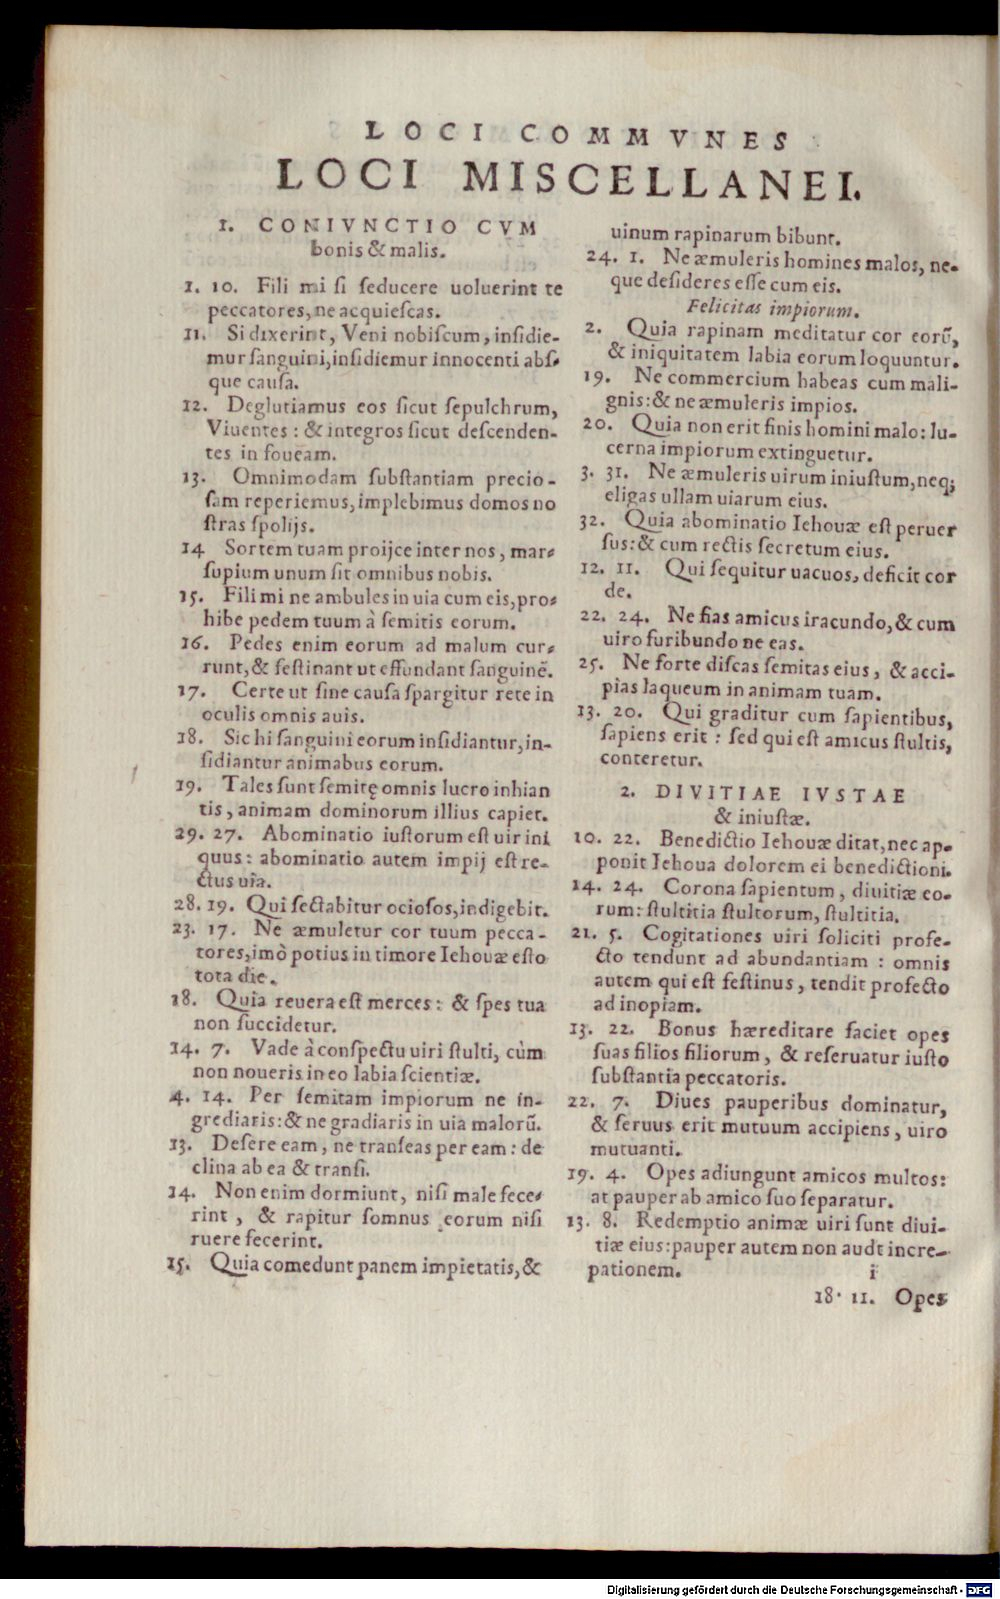 LOCI COMMVNES
LOCI MISCELLANEI.
1. CONIVNCTIO CVM
bonis & malis.
1. 10. Fili mi si seducere uoluerint te
peccatores, ne acquiescas.
11. Si dixerint, Veni nobiscum, insidie-
mur sanguini, insidiemur innocenti abs-
que causa.
12. Deglutiamus eos sicut sepulchrum,
Viuentes: & integros sicut descenden-
tes in foueam.
13. Omnimodam substantiam precio-
sam reperiemus, implebimus domos no
stras spolijs.
14 Sortem tuam proijce inter nos, mar-
supium unum sit omnibus nobis.
15. Fili mi ne ambules in uia cum eis, pro-
hibe pedem tuum à semitis eorum.
16. Pedes enim eorum ad malum cur-
runt, & festinant ut effundant sanguinẽ.
17. Certe ut sine causa spargitur rete in
oculis omnis auis.
18. Sic hi sanguini eorum insidiantur, in-
sidiantur animabus eorum.
19. Tales sunt semitę omnis lucro inhian
tis, animam dominorum illius capiet.
29. 27. Abominatio iustorum est uir ini
quus: abominatio autem impij est re-
ctus uia.
28. 19. Qui sectabitur ociosos, indigebit.
23. 17. Ne æmuletur cor tuum pecca-
tores, imò potius in timore Iehouæ esto
tota die.
18. Quia reuera est merces: & spes tua
non succidetur.
14. 7. Vade à conspectu uiri stulti, cùm
non noueris in eo labia scientiæ.
4. 14. Per semitam impiorum ne in-
grediaris: & ne gradiaris in uia malorũ.
13. Desere eam, ne transeas per eam: de
clina ab ea & transi.
14. Non enim dormiunt, nisi male fece-
rint, & rapitur somnus eorum nisi
ruere fecerint.
15. Quia comedunt panem impietatis, &
uinum rapinarum bibunt.
24. 1. Ne æmuleris homines malos, ne-
que desideres esse cum eis.
Felicitas impiorum.
2. Quia rapinam meditatur cor eorũ,
& iniquitatem labia eorum loquuntur.
19. Ne commercium habeas cum mali-
gnis: & ne æmuleris impios.
20. Quia non erit finis homini malo: lu-
cerna impiorum extinguetur.
3. 31. Ne æmuleris uirum iniustum, neq;
eligas ullam uiarum eius.
32. Quia abominatio Iehouæ est peruer
sus: & cum rectis secretum eius.
12. 11. Qui sequitur uacuos, deficit cor
de.
22. 24. Ne fias amicus iracundo, & cum
uiro furibundo ne eas.
25. Ne forte discas semitas eius, & acci-
pias laqueum in animam tuam.
13. 20. Qui graditur cum sapientibus,
sapiens erit: sed qui est amicus stultis,
conteretur.
2. DIVITIAE IVSTAE
& iniustæ.
10. 22. Benedictio Iehouæ ditat, nec ap-
ponit Iehoua dolorem ei benedictioni.
14. 24. Corona sapientum, diuitiæ eo-
rum: stultitia stultorum, stultitia.
21. 5. Cogitationes uiri soliciti profe-
cto tendunt ad abundantiam: omnis
autem qui est festinus, tendit profecto
ad inopiam.
13. 22. Bonus hæreditare faciet opes
suas filios filiorum, & reseruatur iusto
substantia peccatoris.
22. 7. Diues pauperibus dominatur,
& seruus erit mutuum accipiens, uiro
mutuanti.
19. 4. Opes adiungunt amicos multos:
at pauper ab amico suo separatur.
13. 8. Redemptio animæ uiri sunt diui-
tiæ eius: pauper autem non audt incre-
pationem. i
18. 11. Opes
Digitalisierung gefördert durch die Deutsche Forschungsgemeinschaft - DFG